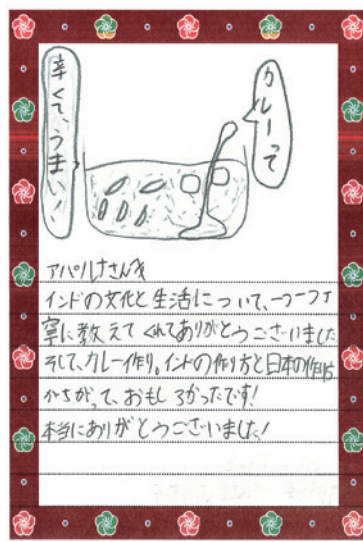 カレーって
辛くて、うまい!
アパルナさんへ
インドの文化と生活について、一つ一つ丁
寧に教えてくれてありがとうございました
そして、カレー作り。インドの作り方と日本の作り方
がちがって、おもしろかったです!
本当にありがとうございました!